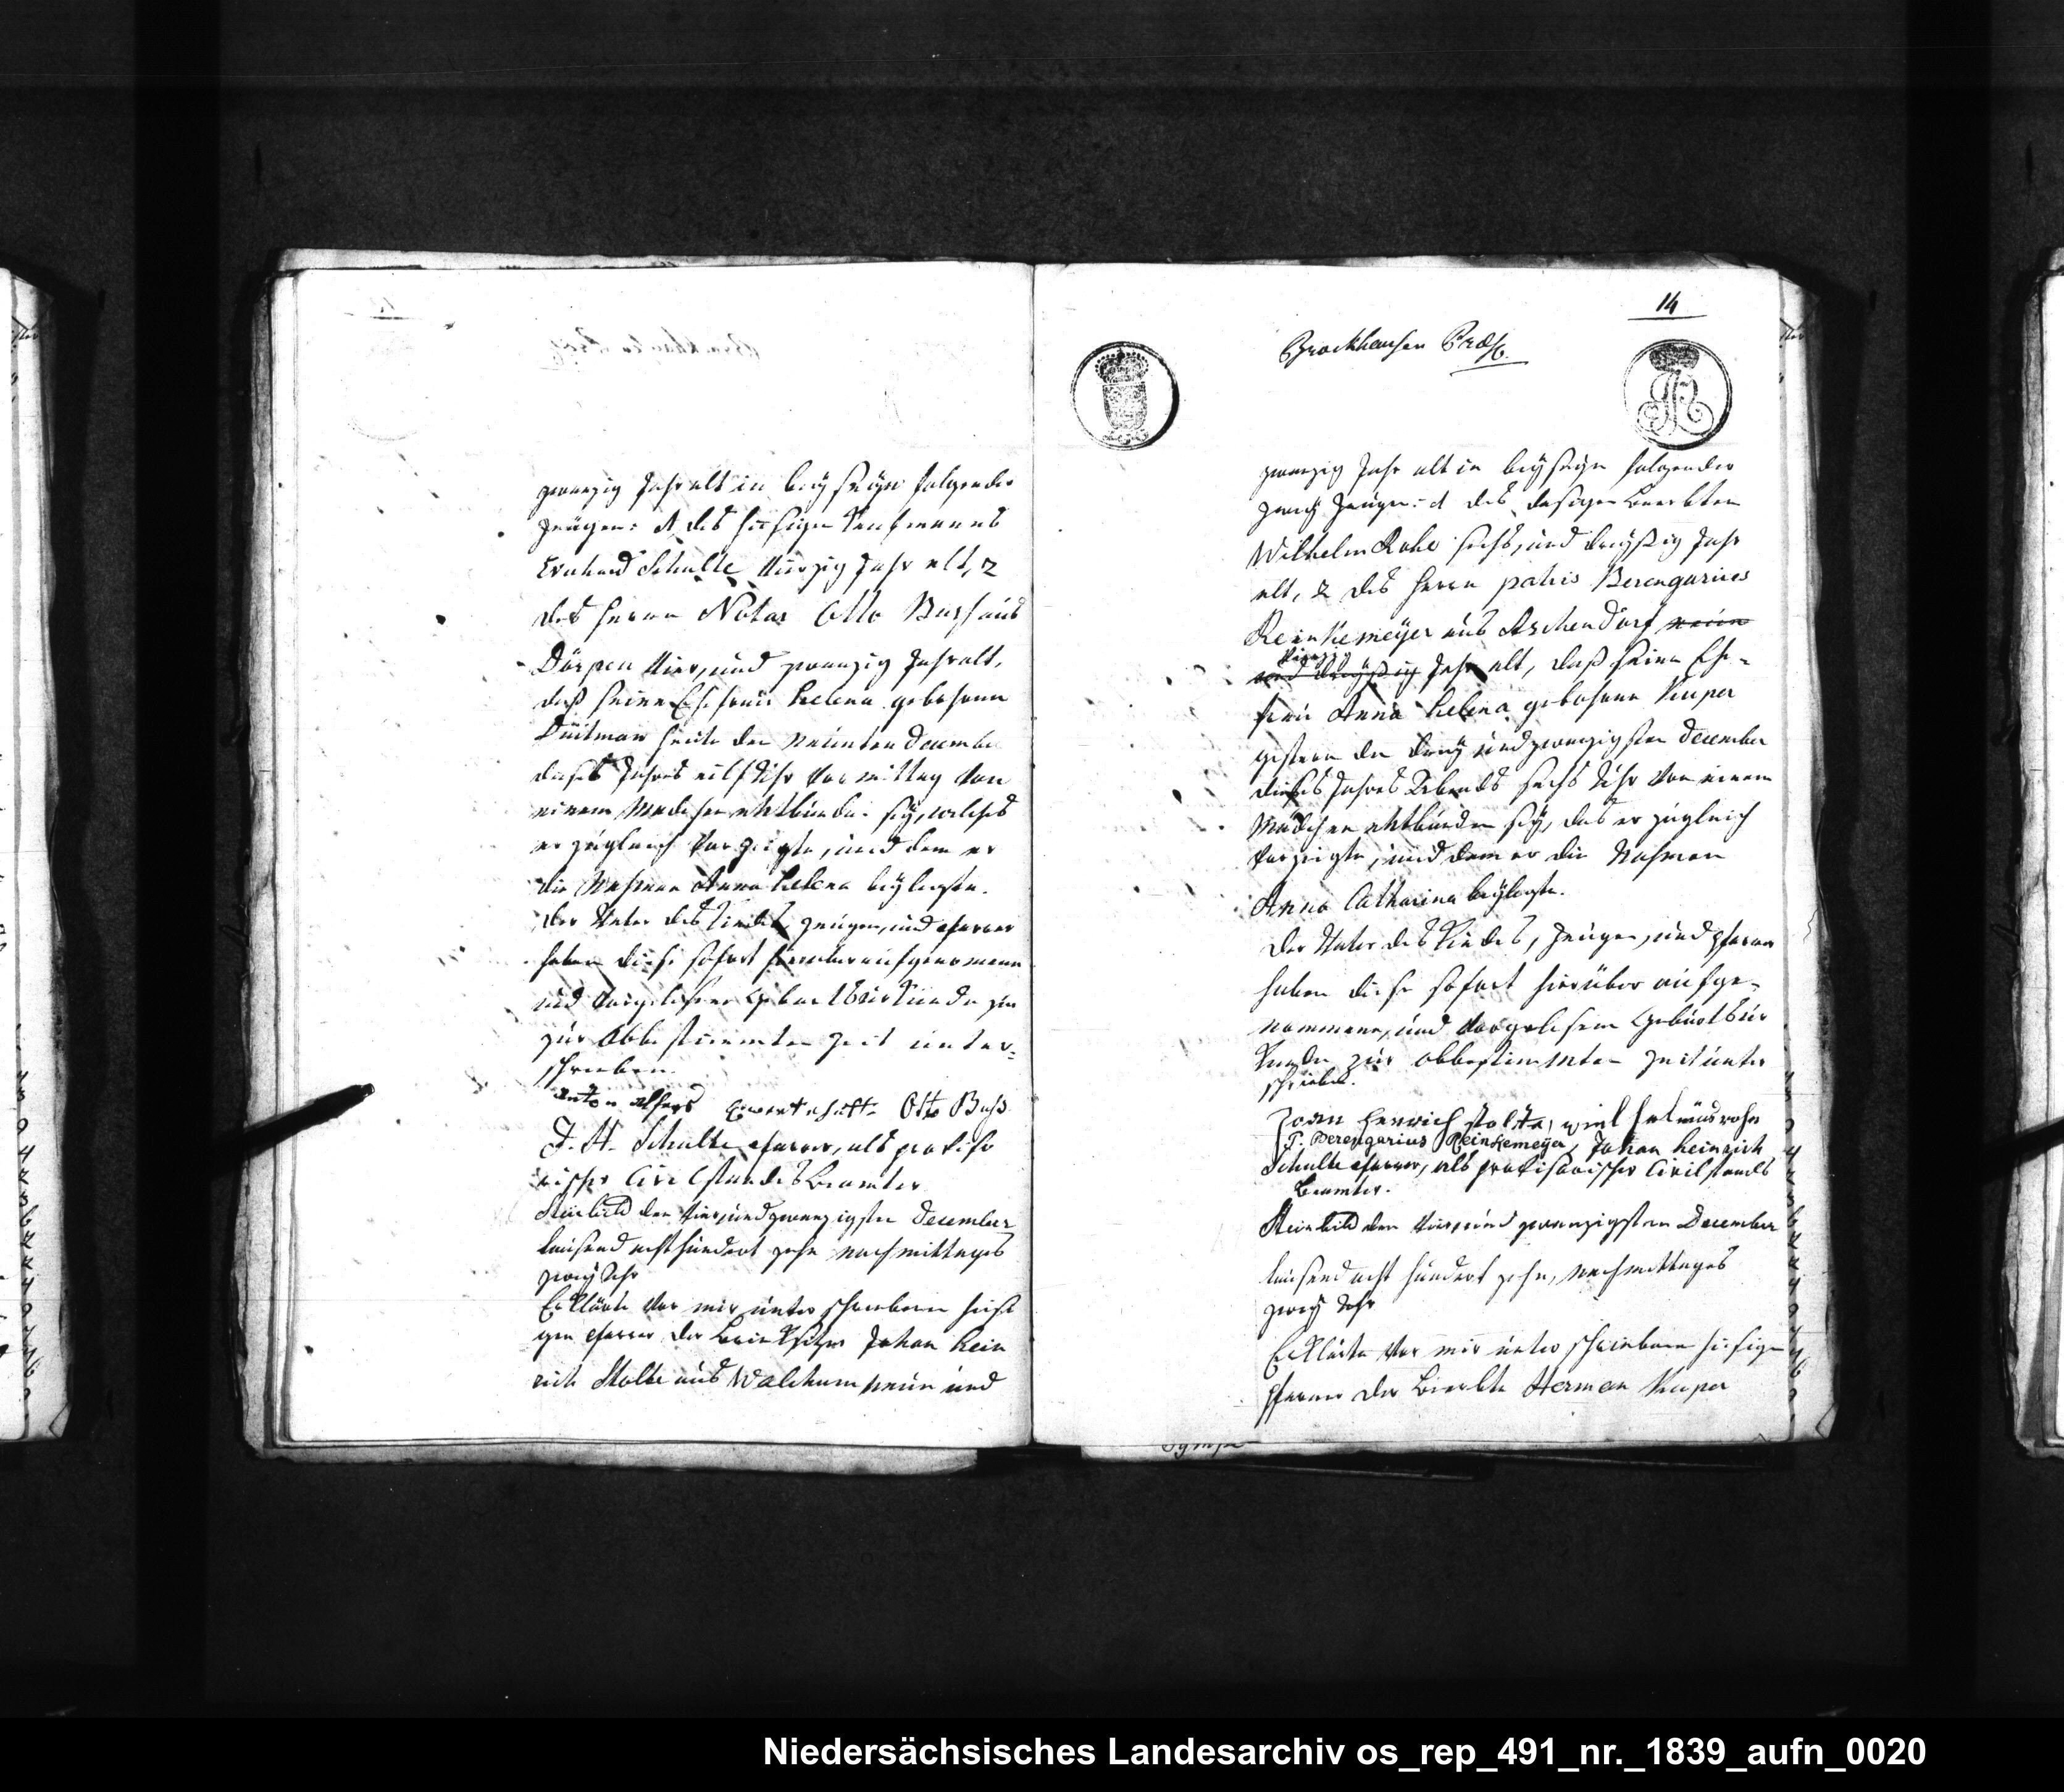 zwanzig Jahr alt in beyseyn folgender
Zeugen: 1 des hiesigen Kaufmanns
Evehard Schulte vierzig Jahr alt, 2
des Herrn Notar Otto Buss aus
Dörpen vier und zwanzig Jahr alt,
daß seine Ehefrau Helena gebohrne
heute den neunten December
dieses Jahres eilf Uhr vormittag von
einem Mädchen entbunden sey, welches
er zugleich vorzeigte, und dem er
die Nahmen Anna Helena beylegte.
der Vater des Kindes, Zeugen, und Pfarrer
haben diese sofort hierüber aufgenommene
und vorgelesene Geburtsurkunde
zur obbestimmten Zeit unter=
schrieben.
Anton Alfers Otto Buss
J. H. Schulte Pfarrer, als proviso
rischer Civilstandes Beamter
Steinbild den vier und zwanzigsten December
tausend acht hundert zehn nachmittages
zwey Uhr
Erklärte vor mir unterschriebenen hiesi
gen Pfarrer der Brinksitzer Johan Hein
rich Stolte aus Walchum neun und
14
Brockhausen Präs.
zwanzig Jahr alt in beyseyn folgender
zwey Zeugen: 1 des dasigen Beerbten
Wilhelm Rohe sechs, und dreyßig Jahr
alt, 2 des Herrn patris Berengarius
Reinkemeyer aus Aschendorf neun
vierzig
und dreyßig Jahr alt, daß seine Ehe=
frau Anna Helena gebohrne Kuper
gestern den drey und zwanzigsten December
dieses Jahres Abends sechs Uhr von einem
Mädchen entbunden sey, das er zugleich
vorzeigte, und dem er die Nahmen
Anna Catharina beylegte.
Der Vater des Kindes, Zeugen, und Pfarrer
haben diese sofort hierüber aufge=
nommene, und vorgelesene Geburtsur
kunde zur obbestimmten Zeit unter
schrieben.
Joan Henrich stolte, wilhelmus rohe
P. Berengarius Reinkemeyer, Johan Heinrich
Schulte Pfarrer, als provisorischer Civilstands
Beamter.
Steinbild den vier und zwanzigsten December
tausend acht hundert zehn, nachmittages
zwey Uhr
Erklärte vor mir unterschriebenen hiesigen
Pfarrer der Beerbte Herman Kuper
Niedersächsisches Landesarchiv os_rep_491_nr._1839_aufn_0020